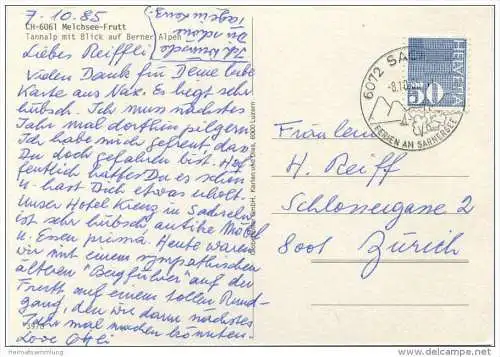 7.10.85
CH-6061 Melchsee-Frutt
Tannalp mit Blick auf Berner Alpen
Ich wünsche
Dir schöne
Tage in
Liebes Reiffli,
Vielen Dank für Deine liebe
Karte aus Nax. Es liegt sehr
hübsch. Ich muss nächstes
Jahr mal dorthin pilgern.
Ich habe mich gefreut, dass
Du doch gefahren bist. Hof-
fentlich hattest Du es schön
u. hast Dich etwas erholt.
Unser Hotel Kreuz in Sachseln
ist sehr hübsch, antike Möbel
u. Essen prima. Heute waren
wir mit einem sympathischen
älteren "Bergführer" auf der
Frutt auf einem tollen Rund-
gang, den wir dann nächstes
Jahr mal machen könnten.
Love
3975
6000 Luzern
6072 SACH
-8.10.
FERIEN AM SARNERSEE
HELVETIA
50
Fräulein
H. Reiff
Schlossergasse 2
8001 Zürich
Heimatsammlung.de